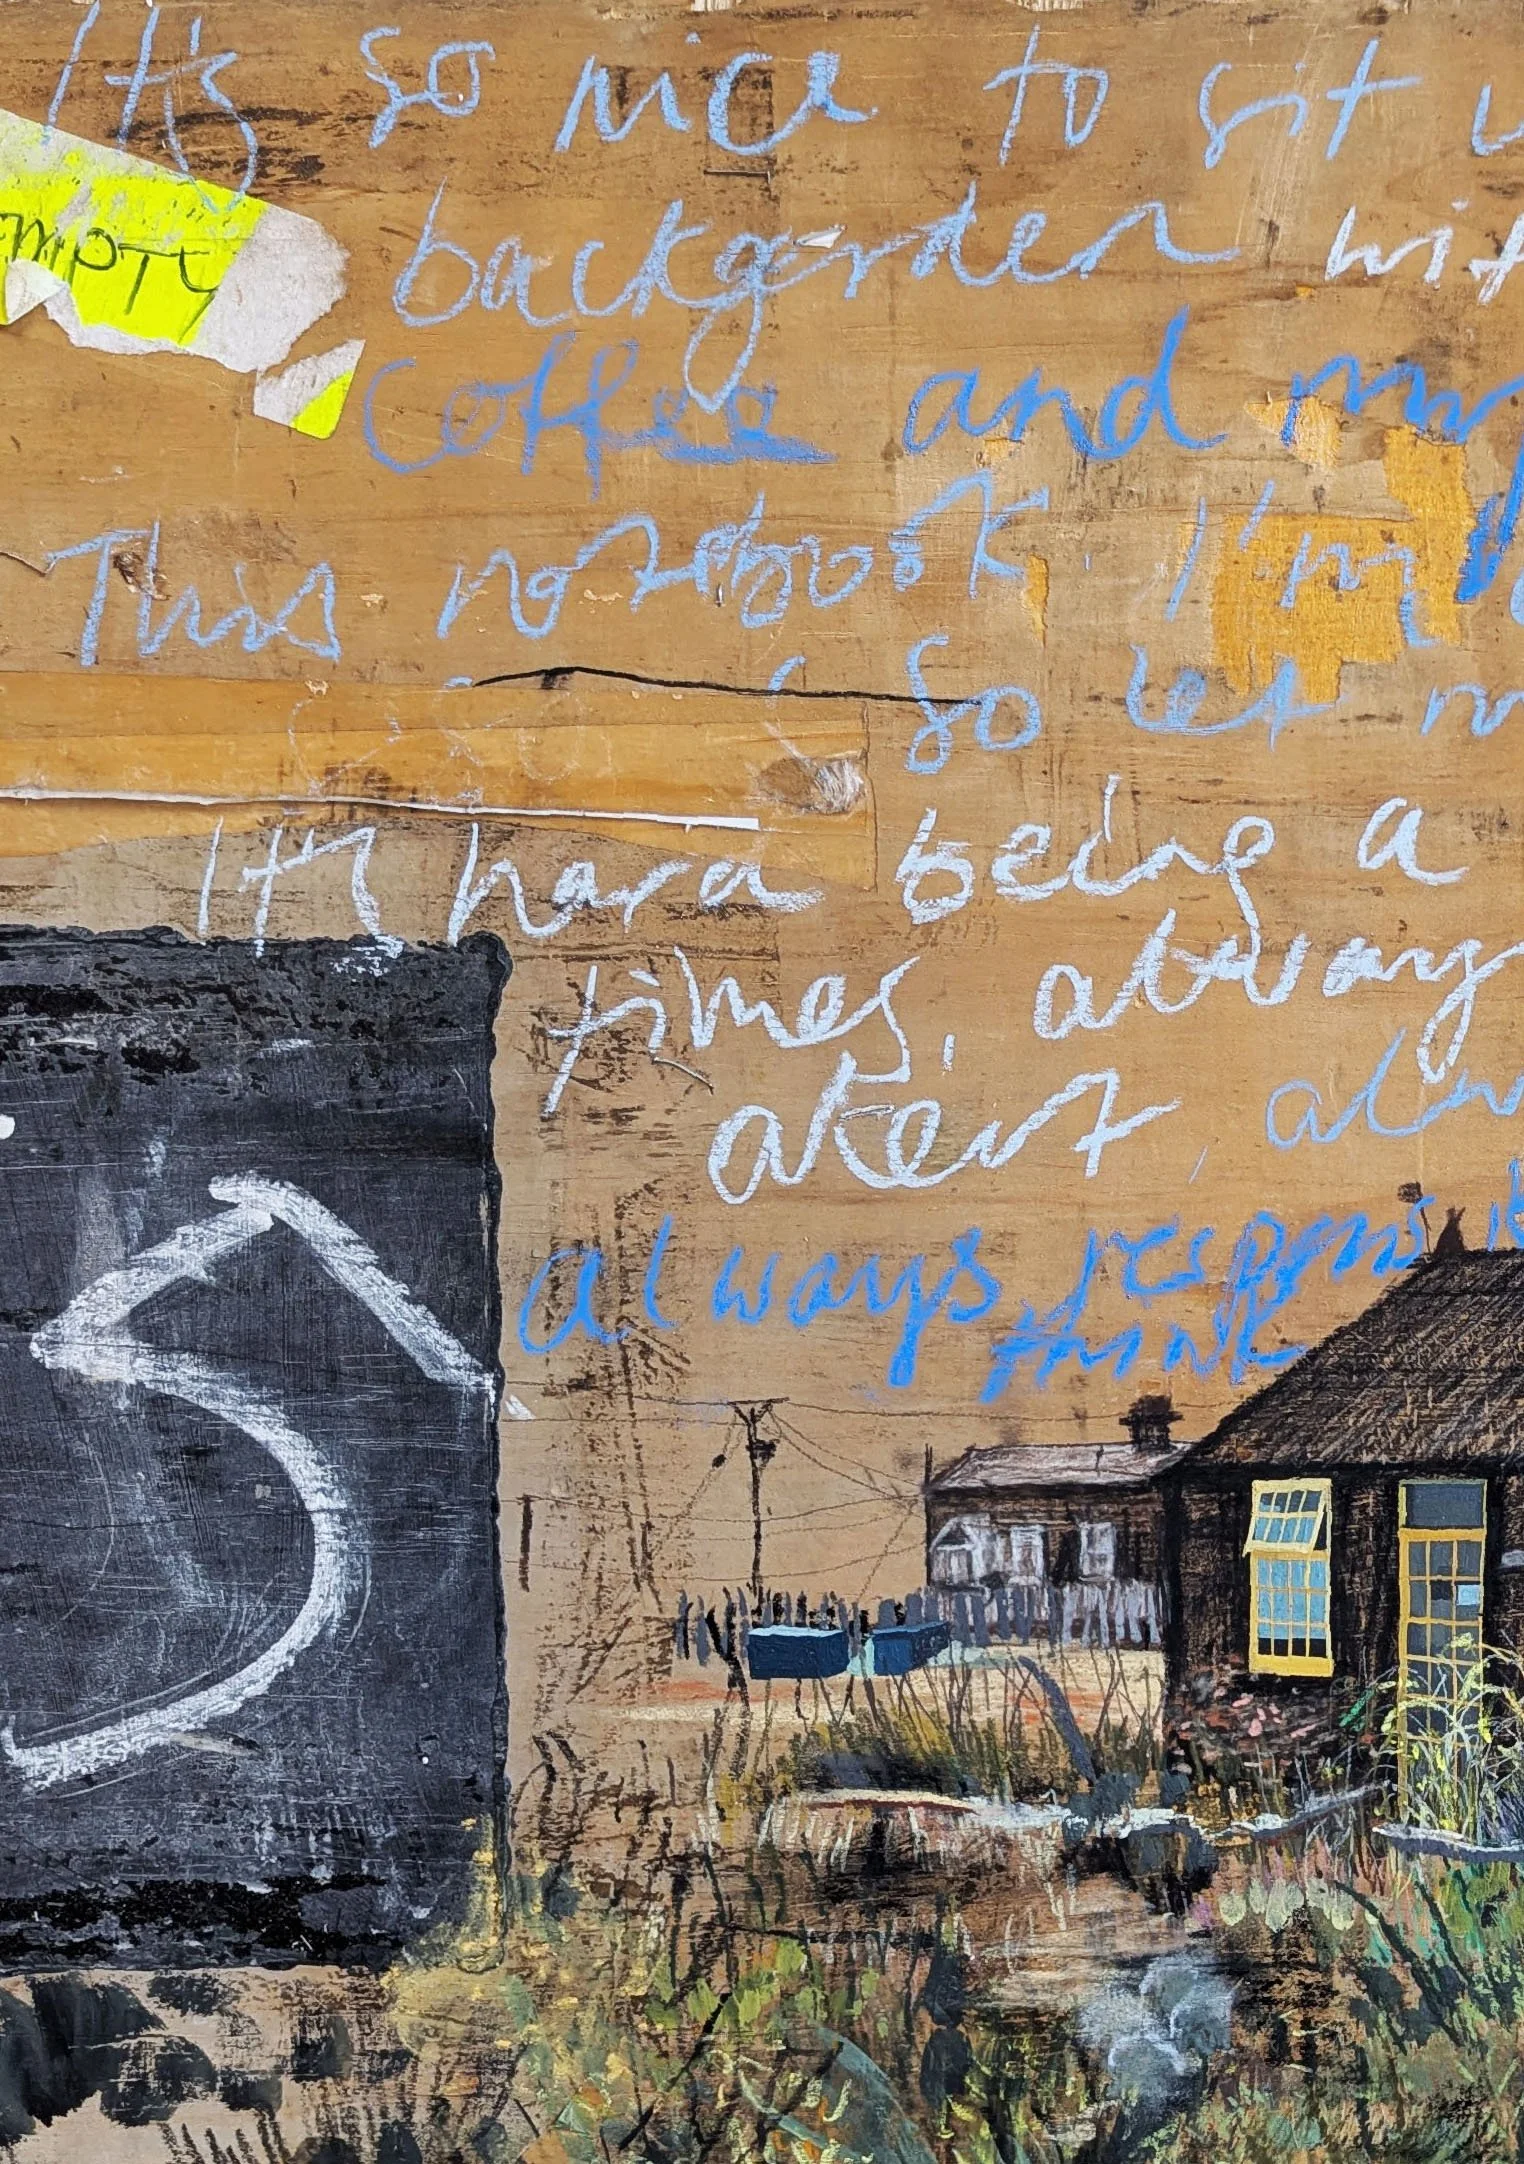 It's so nice to sit
MPTY
backgarden wit
coffee and my
This notebook. I'm
so let m
It's hard being a
times, always
alert, alw
always respons
think
5